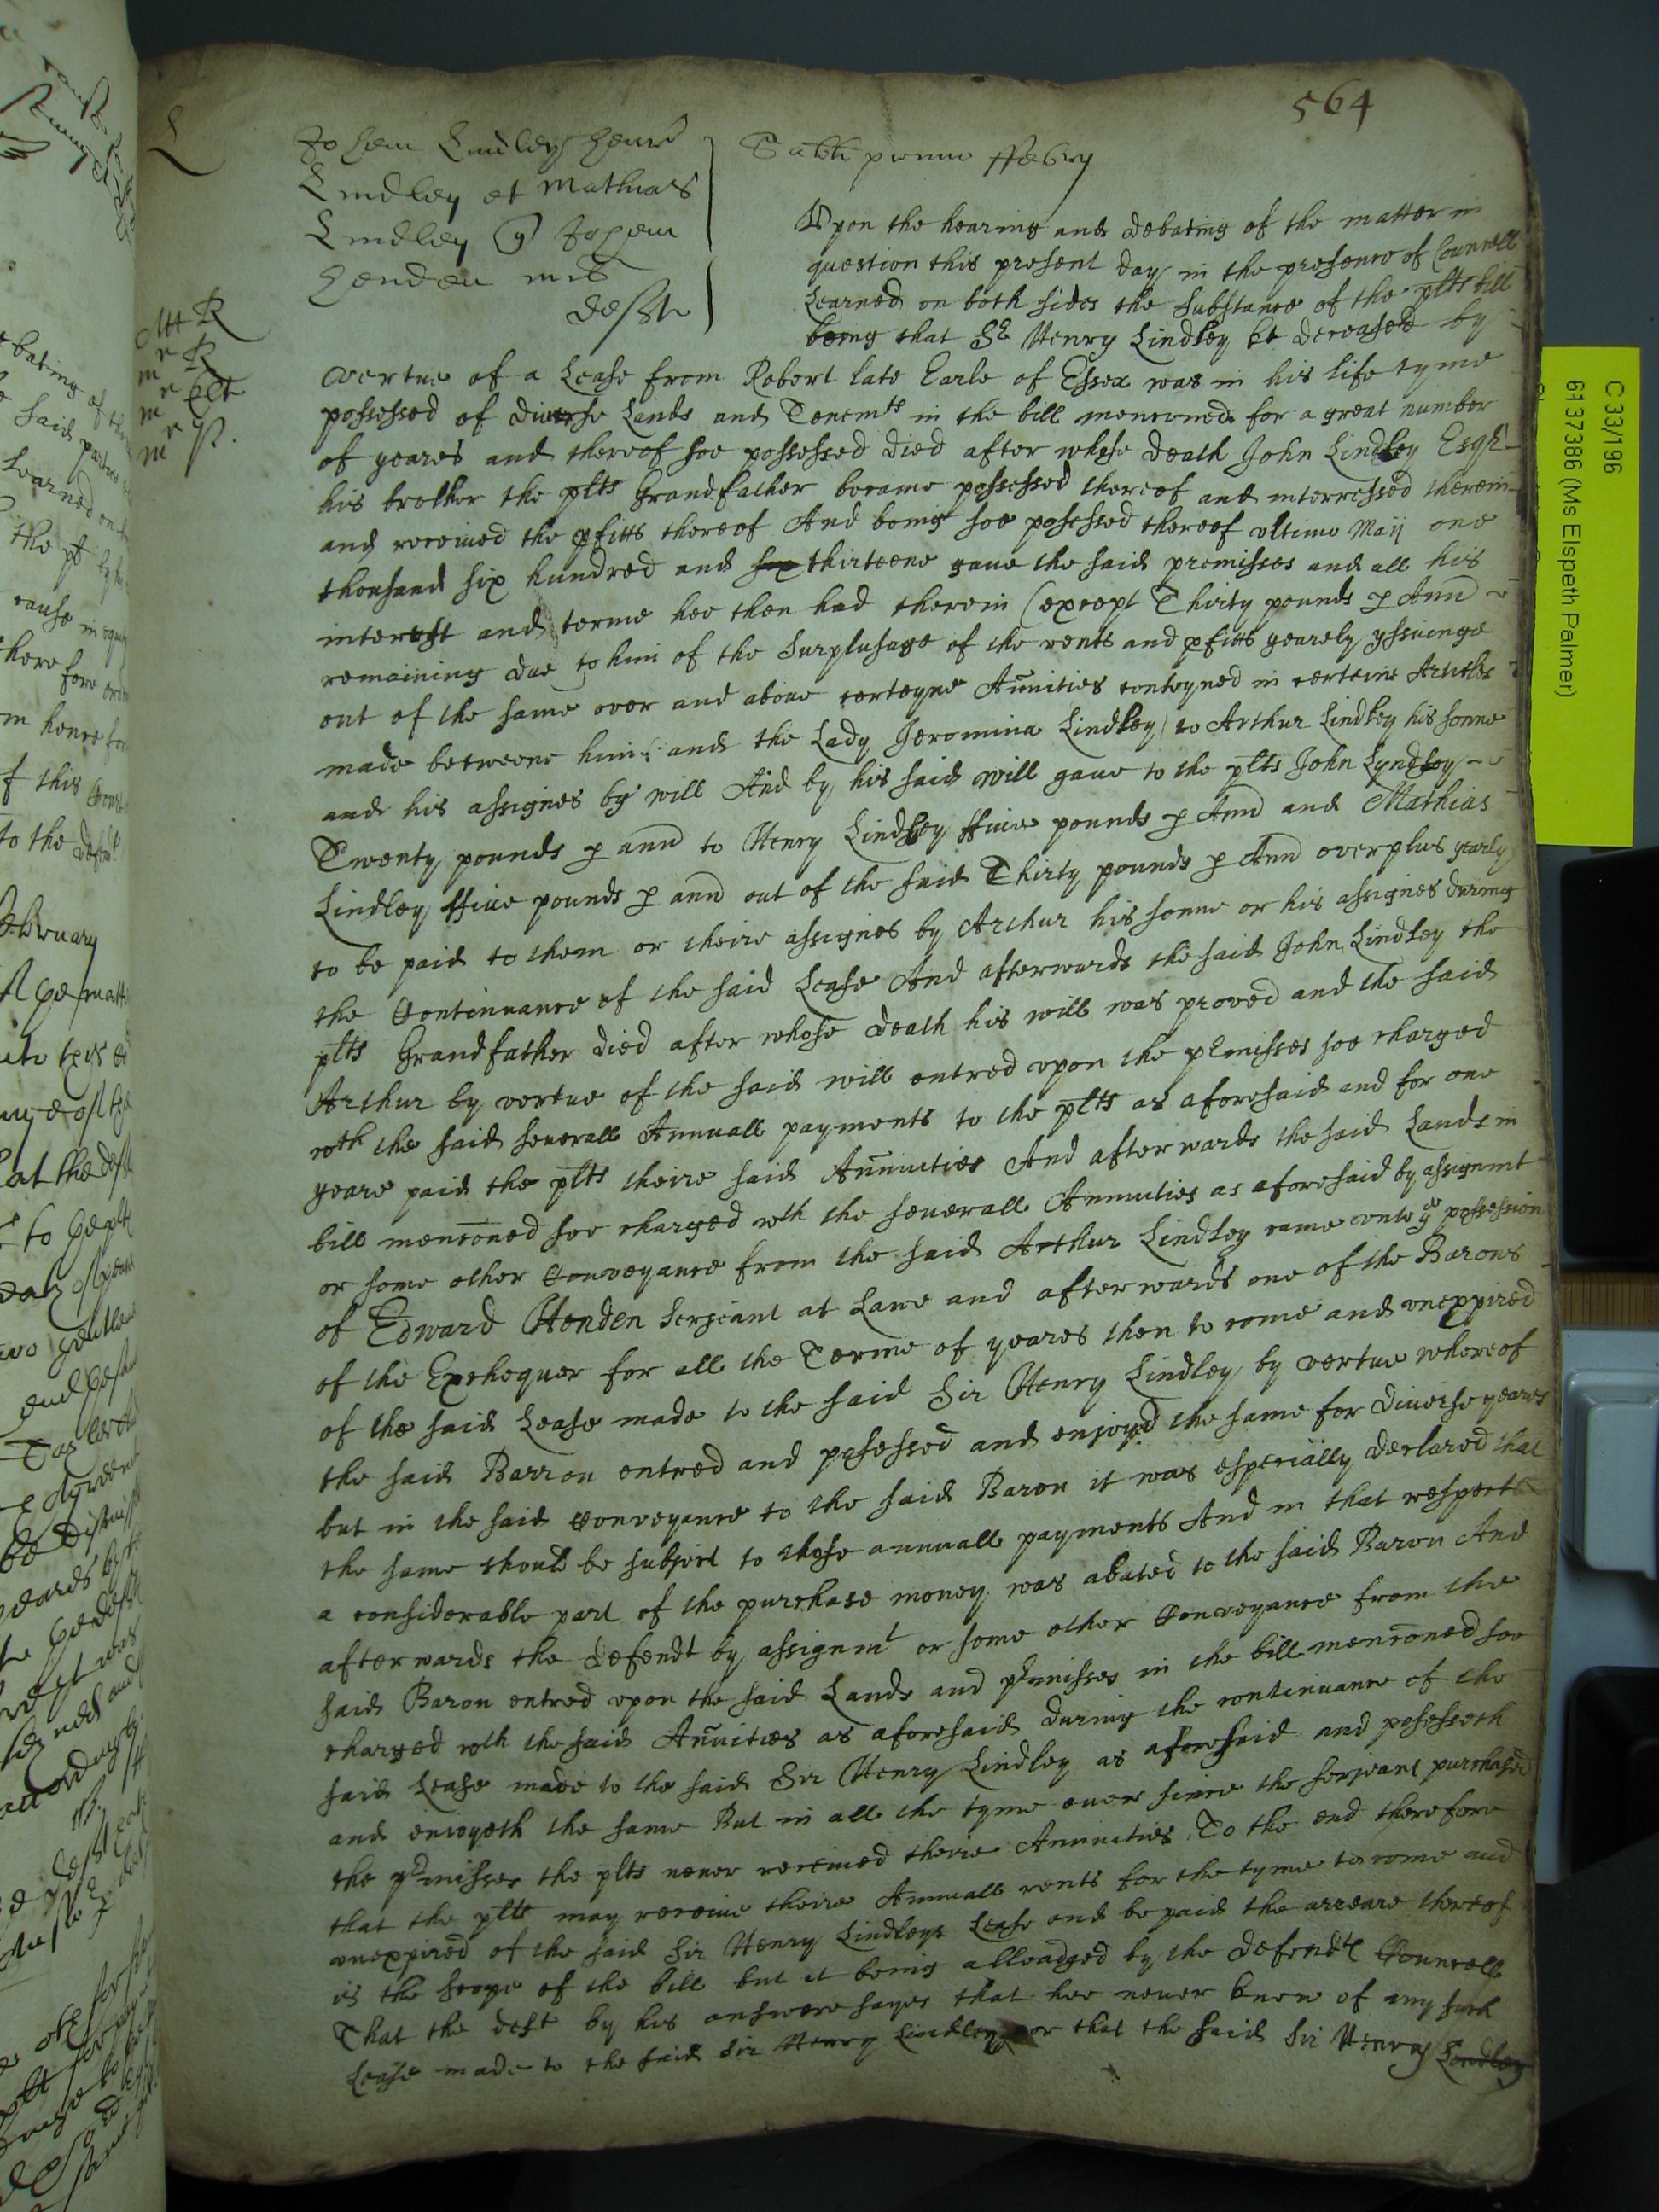 564
L
Johem Lindley Henr
Lindley et Mathias
Lindley q Johem
Henden mil
deft
Sabti primo ffebry
Mr R
mr R
mr
mr
Vpon the hearing and debating of the matter in
question this present day in the presence of Councell
Learned on both sides the Substance of the plts bill
being that Sr Henry Lindley kt deceased by
vertue of a Lease from Robert late Earle of Essex was in his life tyme
possessed of diverse Lands and Tenemts in the bill mencioned for a great number
of yeares and thereof soe possessed died after whose death John Lindley Esqr
his brother the plts Grandfather became possessed thereof and interressed therein
and received the pfitts thereof And being soe posessed thereof vltimo Maij one
thousand six hundred and six thirteene gaue the said premisses and all his
interest and terme hee then had therein (except Thirty pounds p Ann
remaining due to him of the Surplusage of the rents and pfitts yearely yssuinge
out of the same over and aboue certeyne Anuities conteyned in certeine Articles
made betweene him and the Lady Jeromina Lindley) to Arthur Lindley his sonne
and his assignes by will And by his said will gaue to the plts John Lyndley
Twenty pounds p ann to Henry Lindley ffiue pounds p Ann and Mathias
Lindley ffiue pounds p ann out of the said Thirty pounds p Ann overplus yearly
to be paid to them or theire assignes by Arthur his sonne or his assignes during
the Continuance of the said Lease And afterwards the said John Lindley the
plts Grandfather died after whose death his will was proved and the said
Arthur by vertue of the said will entred vpon the pmisses soe charged
wth the said seuerall Annuall payments to the plts as aforesaid and for one
yeare paid the plts theire said Anuities And afterwards the said Lands in
bill mencioned soe charged wth the seuerall Annuities as aforesaid by assignmt
or some other Conveyance from the said Arthur Lindley came vnto ye possession
of Edward Henden Serjeant at Lawe and afterwards one of the Barons
of the Exchequer for all the Terme of yeares then to come and vnexpired
of the said Lease made to the said Sir Henry Lindley by vertue whereof
the said Barron entred and posessed and enjoyed the same for diuerse yeares
but in the said Conveyance to the said Baron it was especially declared that
the same should be subject to those annuall payments And in that respect
a considerable part of the purchase money was abated to the said Baron And
afterwards the Defendt by assignmt or some other Conveyance from the
said Baron entred vpon the said Lands and pmisses in the bill mencioned soe
charged wth the said Anuities as aforesaid during the continuance of the
said Lease made to the said Sir Henry Lindley as aforesaid and posesseth
and enioyeth the same But in all the tyme euer since the serjeant purchased
the pmisses the plts neuer received theire Annuities To the end therefore
that the plts may receiue theire Annuall rents for the tyme to come and
vnexpired of the said Sir Henry Lindleys Lease and be paid the arreare thereof
is the scope of the bill but it being alleadged by the Defendts Councell
That the deft by his answere sayes that hee neuer knew of any such
Lease made to the said Sir Henry Lindley or that the said Sir Henry Lindley
C 33/196
6137386 (Ms Elspeth Palmer)